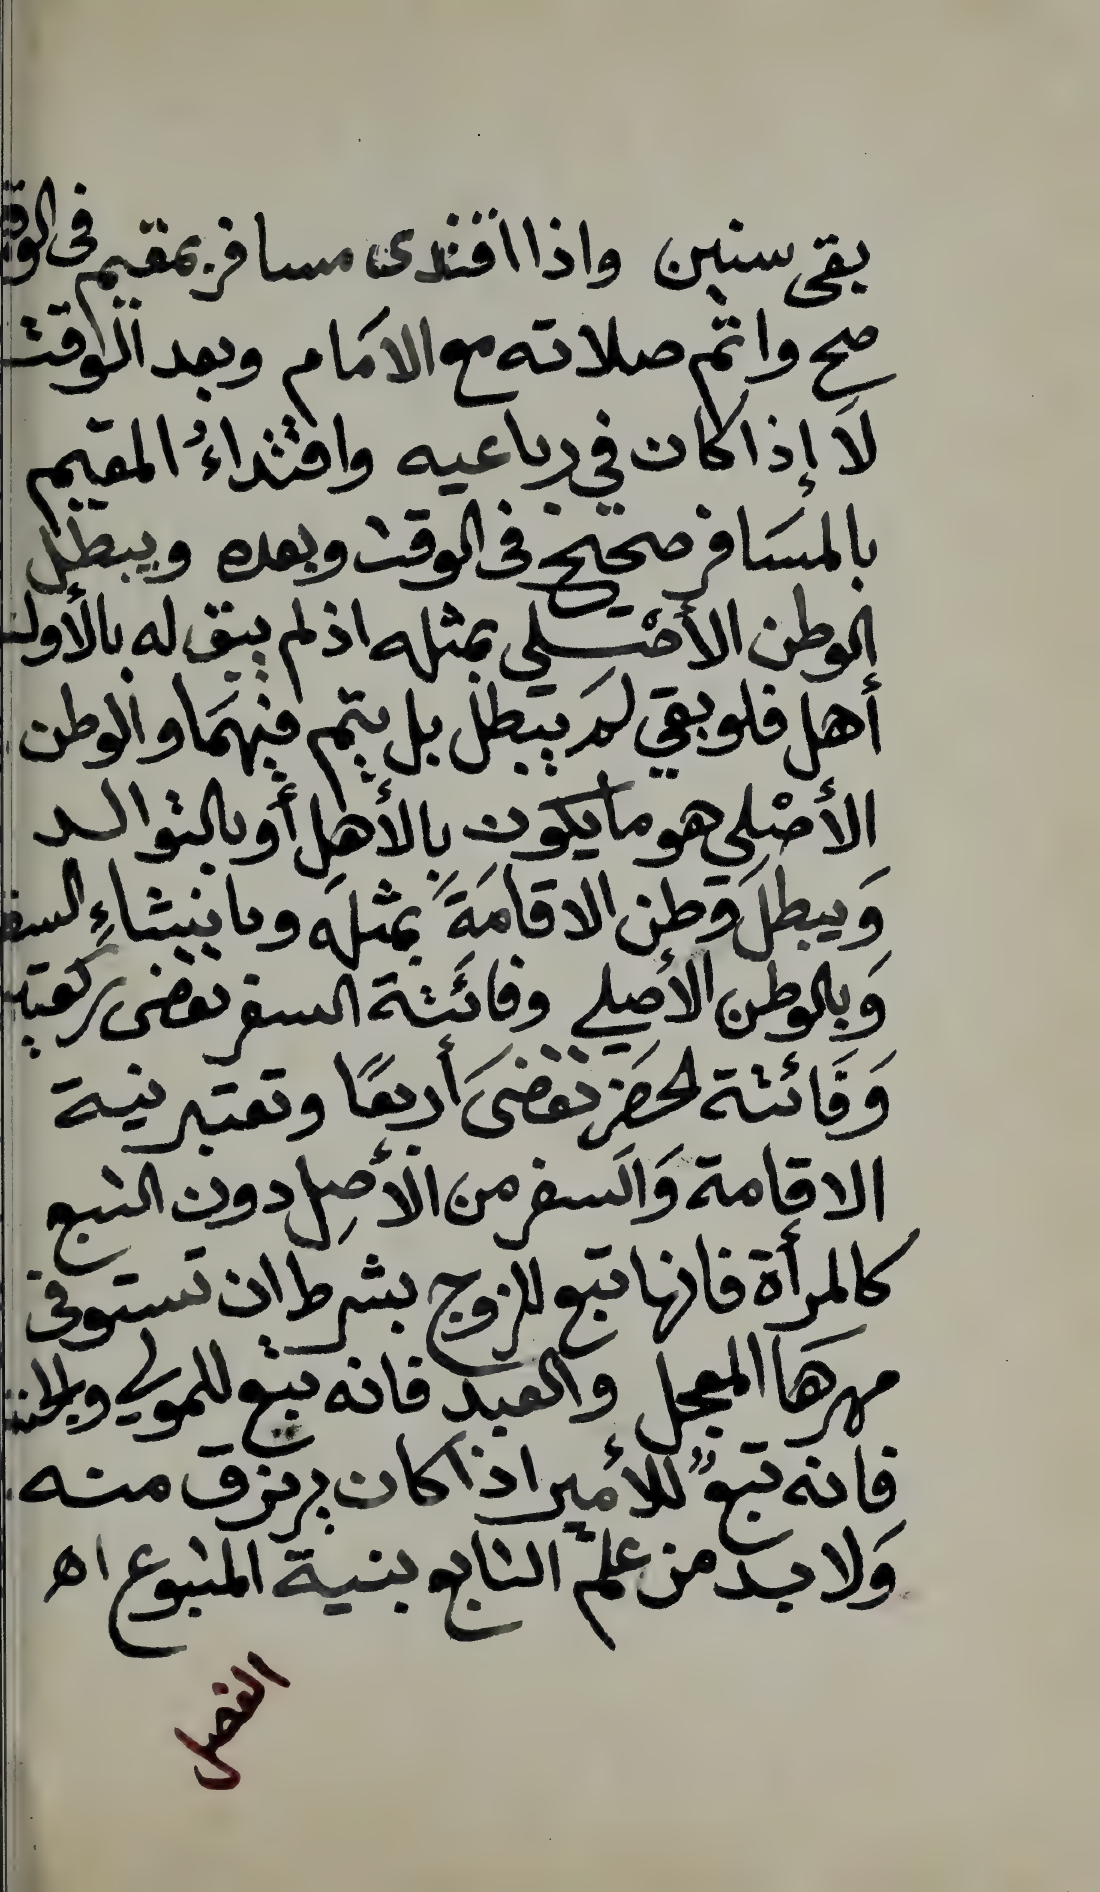 بقى سنين واذا اقتدى مسافر بمقيم فى
صح واتم صلاته مع الامام وبعد الوقت
لا إذا كان في رباعيه واقتداء المقيم
بالمسافر صحيح فى الوقت وبعده ويبطل
الوطن الأصلي بمثله اذ لم يبق له بالأول
أهل فلو بقي لم يبطل بل يتم فيهما والوطن
الأصلي هو ما يكون بالأهل أو بالتوالد
وَيبطل وطن الاقامة بمثله وبانشاءِ السفر
وَبالوطن الأصلي وفائتة السفر تقضى ركعتين
وَفَائتة الحضر تقضىَ أربعًا وتعتبر نية
الاقامة وَالسفر من الأصل دون التبع
كالمرأة فانها تبع للزوج بشرط ان تستوفى
مهرها المعجل والعبد فانه تبع للمولي
فانه تبعٌ للأمير اذا كان يرتزق منه
وَلا بد من علم التابع بنية المتبوع اه
الفصل